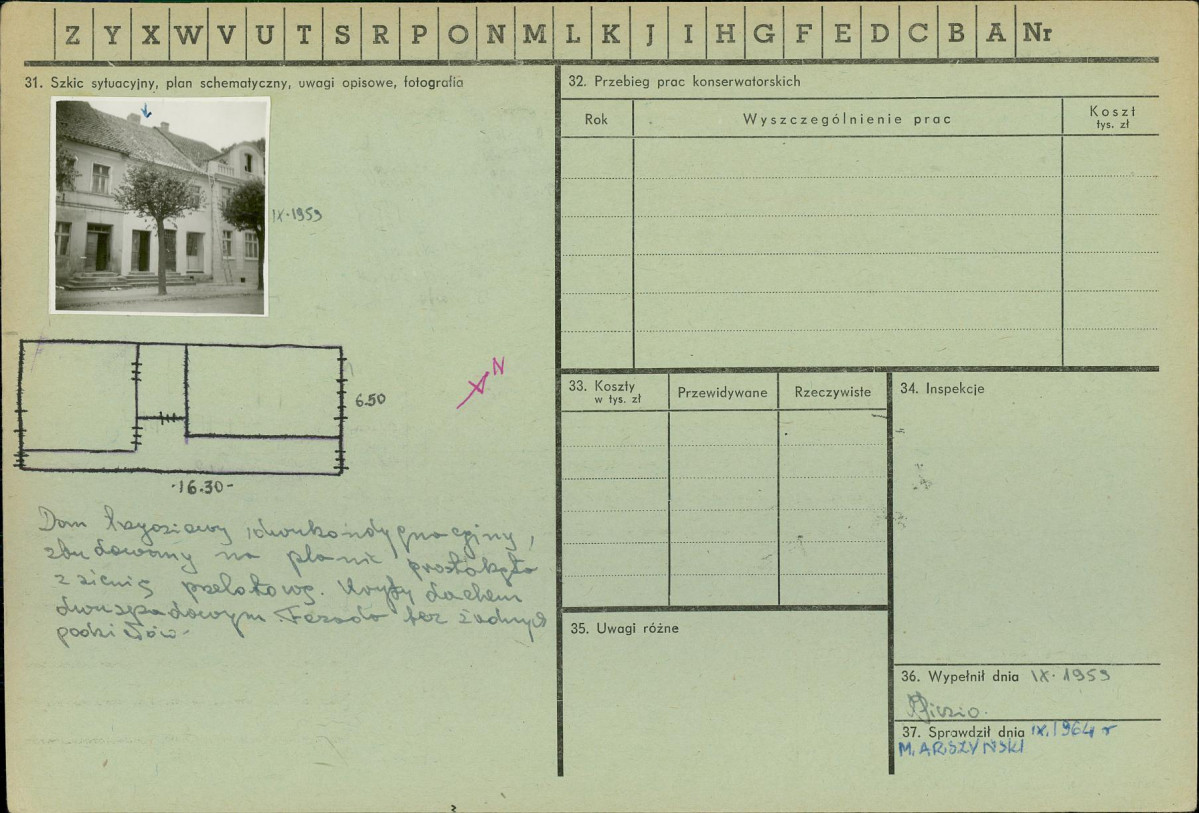 Z Y X W V U T S R P O N M L K J I H G F E D C B A Nr
31. Szkic sytuacyjny, plan schematyczny, uwagi opisowe, fotografia
IX·1959
N
6.50
-16.30-
Dom , dwukondygnacyjny,
zbudowany na planie prostokąta
z sienią przelotową. Kryty dachem
dwuspadowym Fasada bez żadnych
podziałów-
32. Przebieg prac konserwatorskich
Rok
Wyszczególnienie prac
Koszt
tys. zł
33. Koszty
w tys. zł
Przewidywane
Rzeczywiste
34. Inspekcje
35. Uwagi różne
36. Wypełnił dnia IX·1959
37. Sprawdził dnia IX.1964 r
M. ARSZYŃSKI